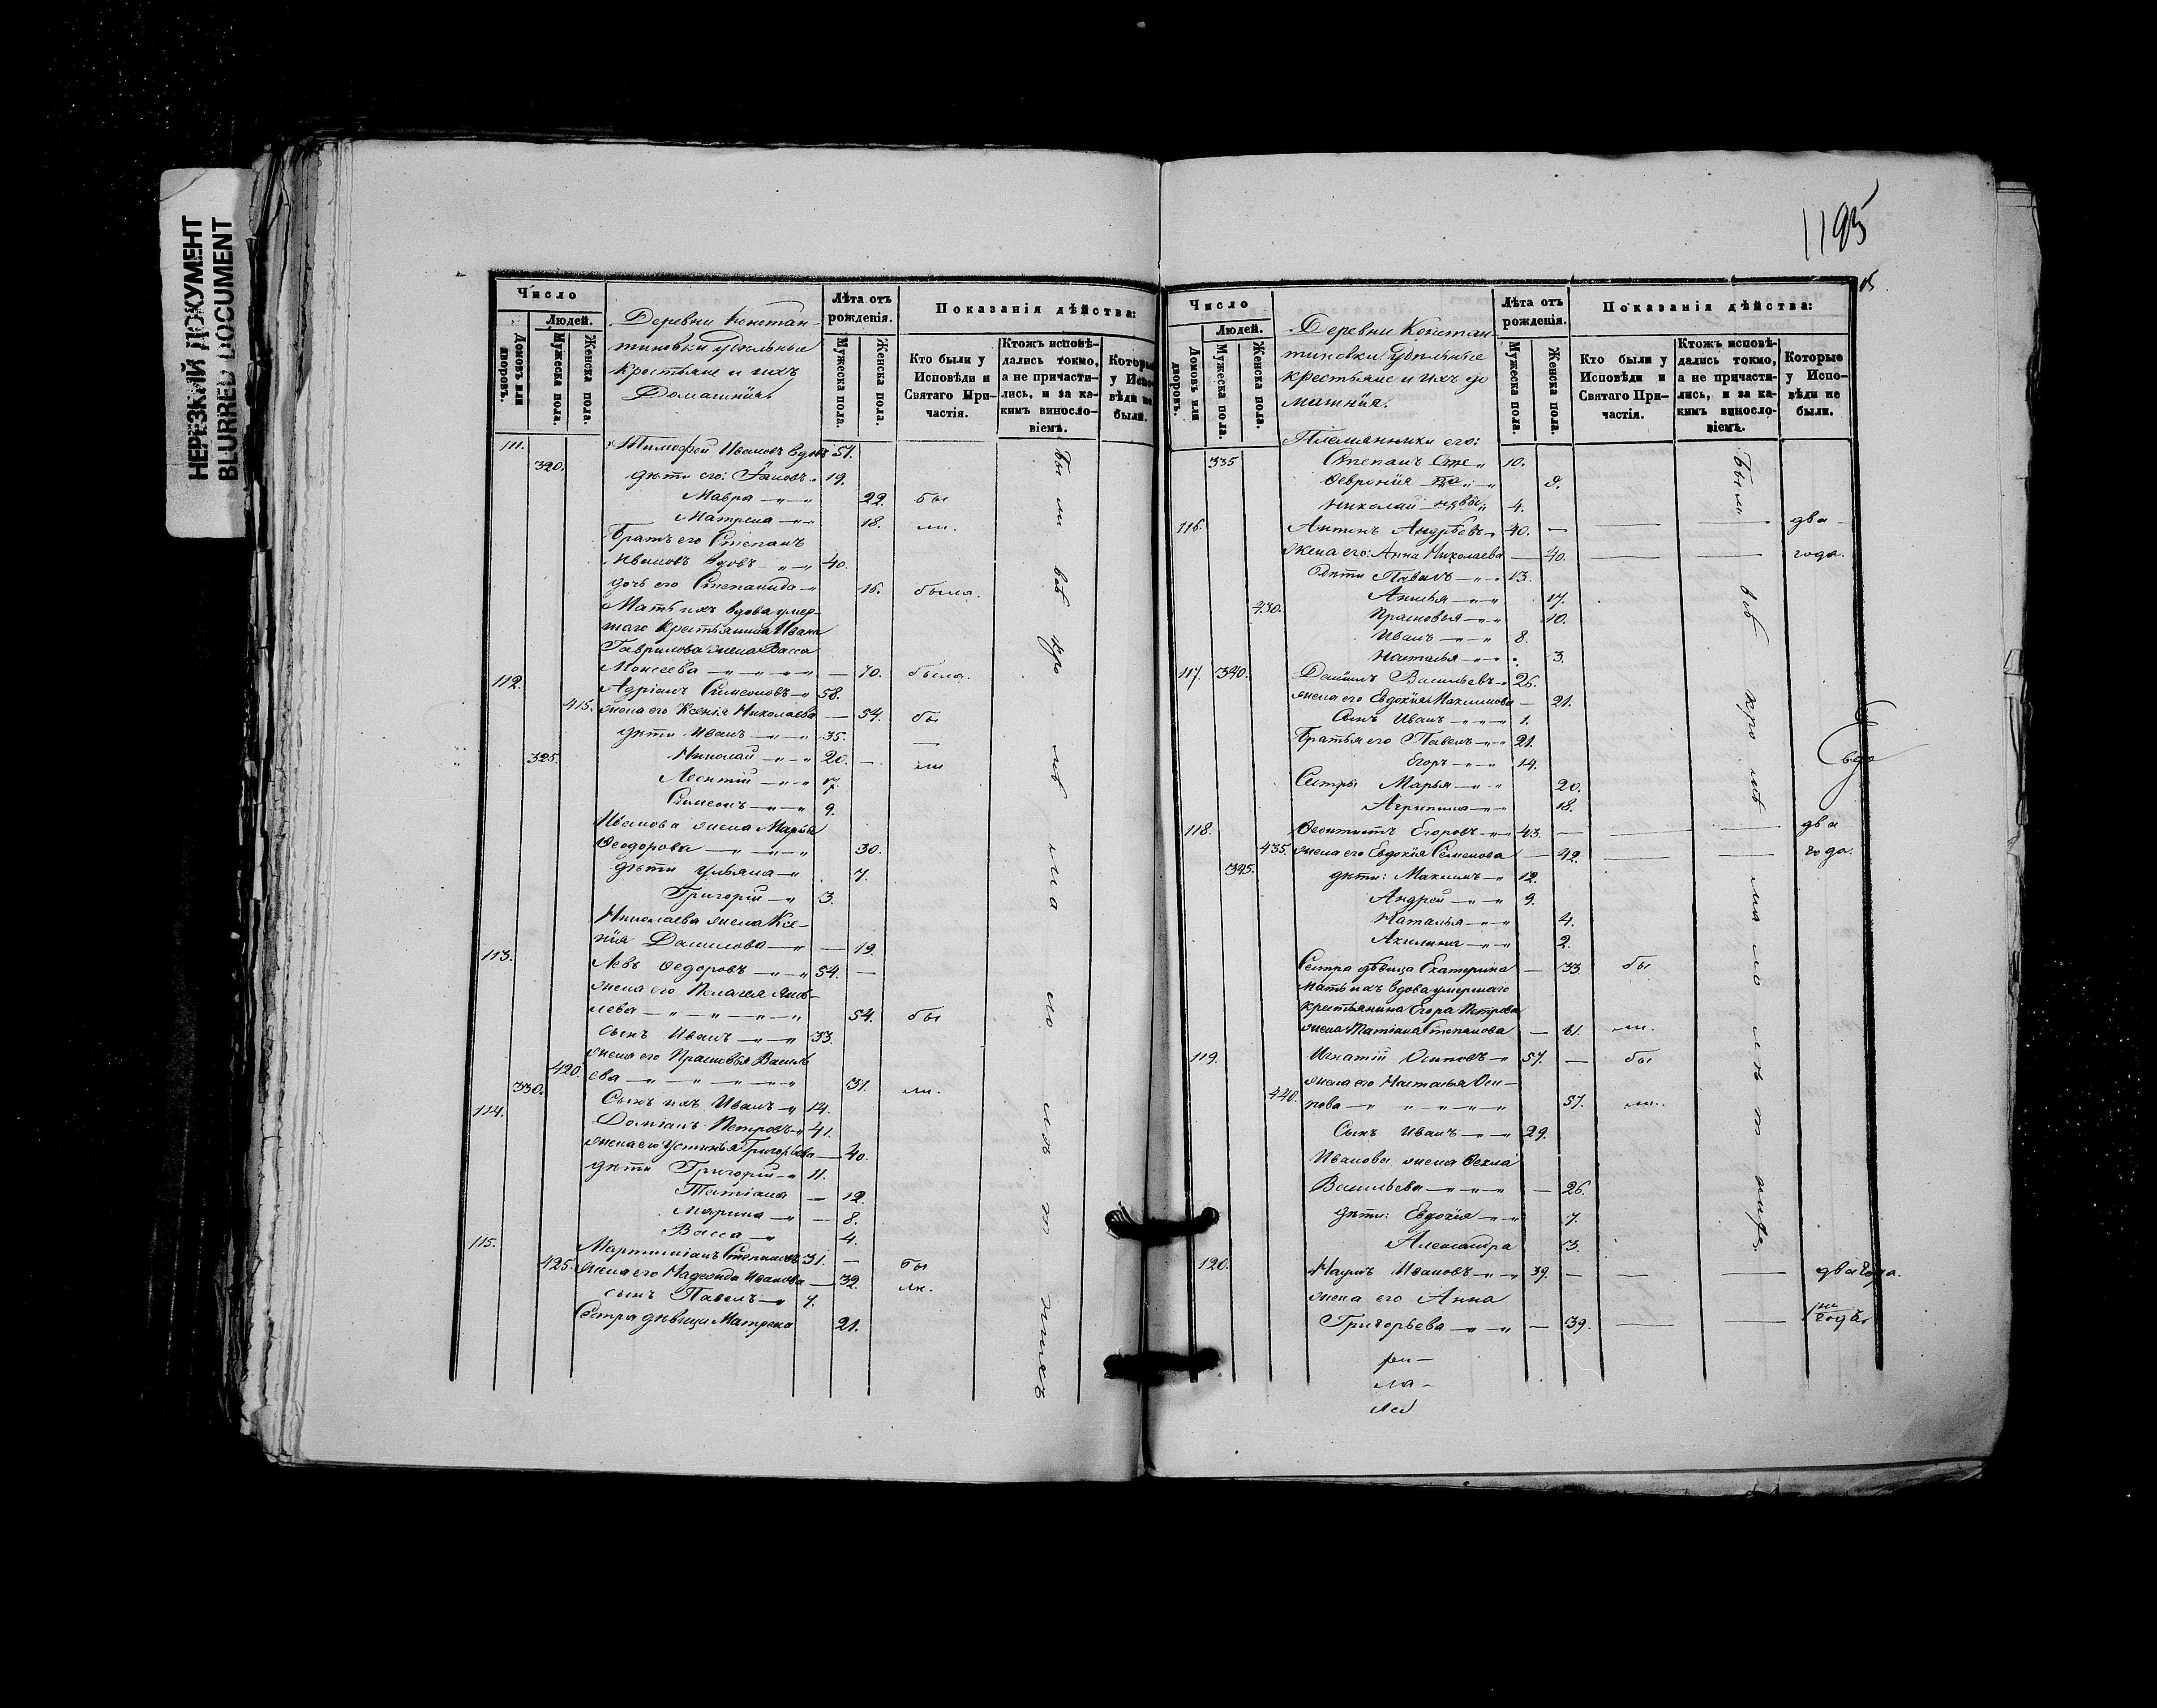 НЕРЕЗКИЙ ДОКУМЕНТ
BLURRED DOCUMENT
1195
Число
Людей.
Домовъ или дворовъ.
Мужеска пола.
Женска пола.
Деревни Констан-
тиновки удѣльные
крестьяне и ихъ
Домашнiи
Лѣта отъ рожденiя.
Мужеска пола.
Женска пола.
Показанiя дѣйства:
Кто были у Исповѣди и Святаго Причастiя.
Ктожъ исповѣдались токмо, а не причастились, и за какимъ винословiемъ.
Которые у Исповѣди не были.
111. Тимофей Ивановъ вдовъ 51.
320. дѣти его: Іаковъ 19.
Мавра 22. бы
Матрена 18. ли.
Братъ его Степанъ
Ивановъ вдовъ 40.
дочь его Степанида 16. была.
Мать ихъ вдова умер-
шаго крестьянина Ивана
Гаврилова жена Васса
Моисеева — 70. была.
112. Адрiанъ Симеоновъ 58.
415. жена его Ксенiя Николаева — 54. бы
дѣти Иванъ 35. —
325. Николай 20. — ли
Леонтiй 17.
Симеонъ 9.
Иванова жена Марiя
Феодорова 30.
дѣти Ульяна 7.
Григорiй 3.
Николаева жена Ксе-
нiя Данилова — 19.
113. Левъ Федоровъ 54. —
жена его Пелагея Яков-
лева 54. бы
сынъ Иванъ 33.
420. жена его Прасковья Василь
ева 31. ли.
330. Сынъ ихъ Иванъ 14.
114. Домiанъ Петровъ 41.
жена его Устинья Григорьева — 40.
дѣти Григорiй 11.
Татiана — 12.
Марина — 8.
Васса 4.
115. Мартинiанъ Степановъ 31. — бы
425. жена его Надежда Иванова — 32. ли.
сынъ Павелъ 7.
Сестра дѣвица Матрена 21.
Число
Людей.
Домовъ или дворовъ.
Мужеска пола.
Женска пола.
Деревни Констан-
тиновки Удѣльные
крестьяне и ихъ до
машнiя.
Лѣта отъ рожденiя.
Мужеска пола.
Женска пола.
Показанiя дѣйства:
Кто были у Исповѣди и Святаго Причастiя.
Ктожъ исповѣдались токмо, а не причастились, и за какимъ винословiемъ.
Которые у Исповѣди не были.
Племянники его:
335 Степанъ 10.
Февронiя 9.
Николай 4.
116. Антонъ Андрѣевъ 40. — — — два
жена его: Анна Николаева — 40. — — года.
дѣти Павелъ 13.
Анисья 17.
430. Прасковья 10.
Иванъ 8.
Наталья 3.
117. 340. Данiилъ Васильевъ 26.
жена его Евдокiя Максимова — 21.
Сынъ Иванъ 1.
Братья его Павелъ 21.
Егоръ 14.
Сестры Марья 20.
Агрипина 18.
118. Феоктистъ Егоровъ 43. — — — два
435. жена его Евдокiя Семенова — 42. — — года.
345. дѣти: Максимъ 12.
Андрей 9.
Наталья 4.
Акилина 2.
Сестра дѣвица Екатерина — 33 бы
мать ихъ вдова умершаго
крестьянина Егора Петрова
жена Татiана Степанова — 61. ли.
119. Игнатiй Осиповъ 57. — бы
440. жена его Наталья Оси-
пова 57. ли.
Сынъ Иванъ 29.
Иванова жена Фекла
Васильева — 26.
дѣти: Евдокiя 7.
Александра 3.
120. Наумъ Ивановъ 39. — — — два года.
жена его Анна
Григорьева — 39. — —